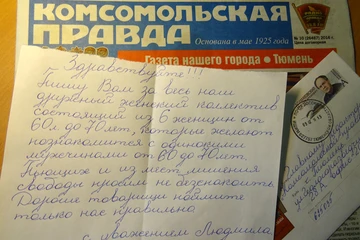 КОМСОМОЛЬСКАЯ
ПРАВДА
Основана в мае 1925 года
Газета нашего города • Тюмень
Здравствуйте!!!
Пишу Вам за весь наш
дружный женский коллектив
состоящий из 6 женщин от
60л до 70лет, которые желают
познакомится с одинокими
мужчинами от 60 до 70лет.
Пьющих и из мест лишения
свободы просим не беспокоить
Дорогие товарищи поймите
только нас правильно
с уважением Людмила